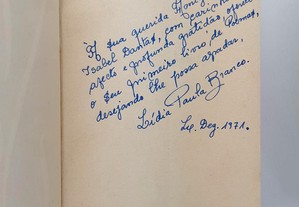 À sua querida
Isabel Dantas, com carinho
afecto e profunda gratidão, oferece
o seu primeiro livro de Poemas,
desejando lhe possa agradar,
Lídia Paula Branco.
Lx. Dez. 1971.